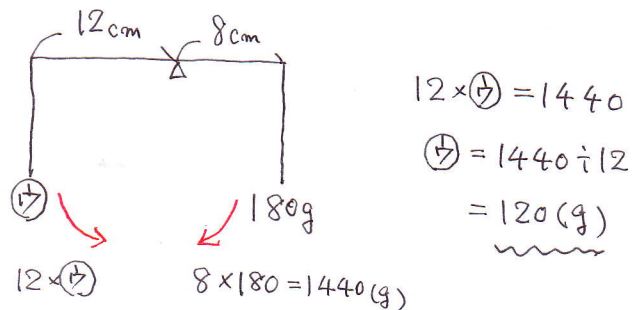 12cm 8cm
㋒ 180g
12×㋒ 8×180=1440(g)
12×㋒=1440
㋒=1440÷12
=120(g)